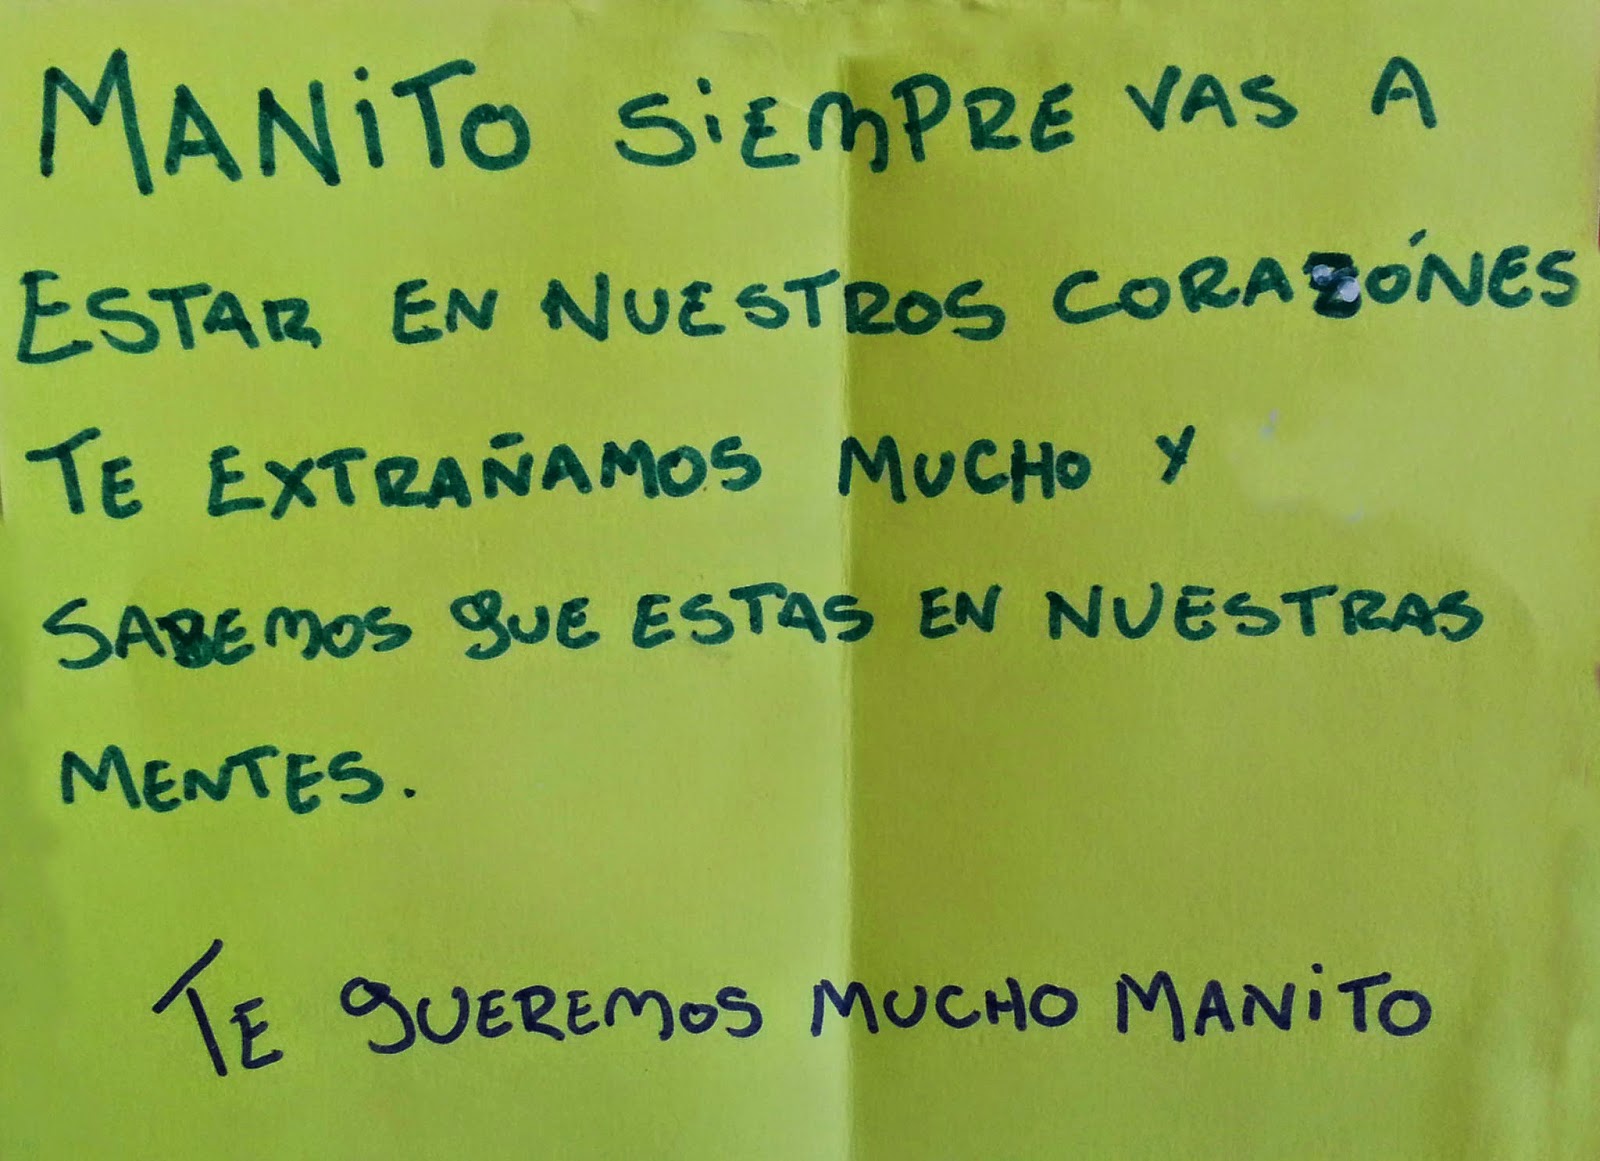 MANiTO SiEMPRE VAS A
ESTAR EN NUESTROS CORAZÓNES
TE EXTRAÑAMOS MUCHO Y
SABEMOS QUE ESTAS EN NUESTRAS
MENTES.
TE QUEREMOS MUCHO MANiTO